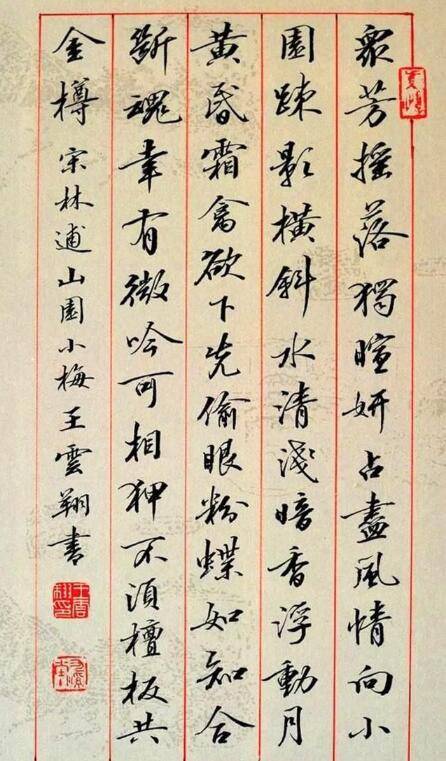 眾芳搖落獨暄妍占盡風情向小
園疎影橫斜水清淺暗香浮動月
黃昏霜禽欲下先偷眼粉蝶如知合
斷魂幸有微吟可相狎不須檀板共
金樽 宋林逋山園小梅王雲翔書